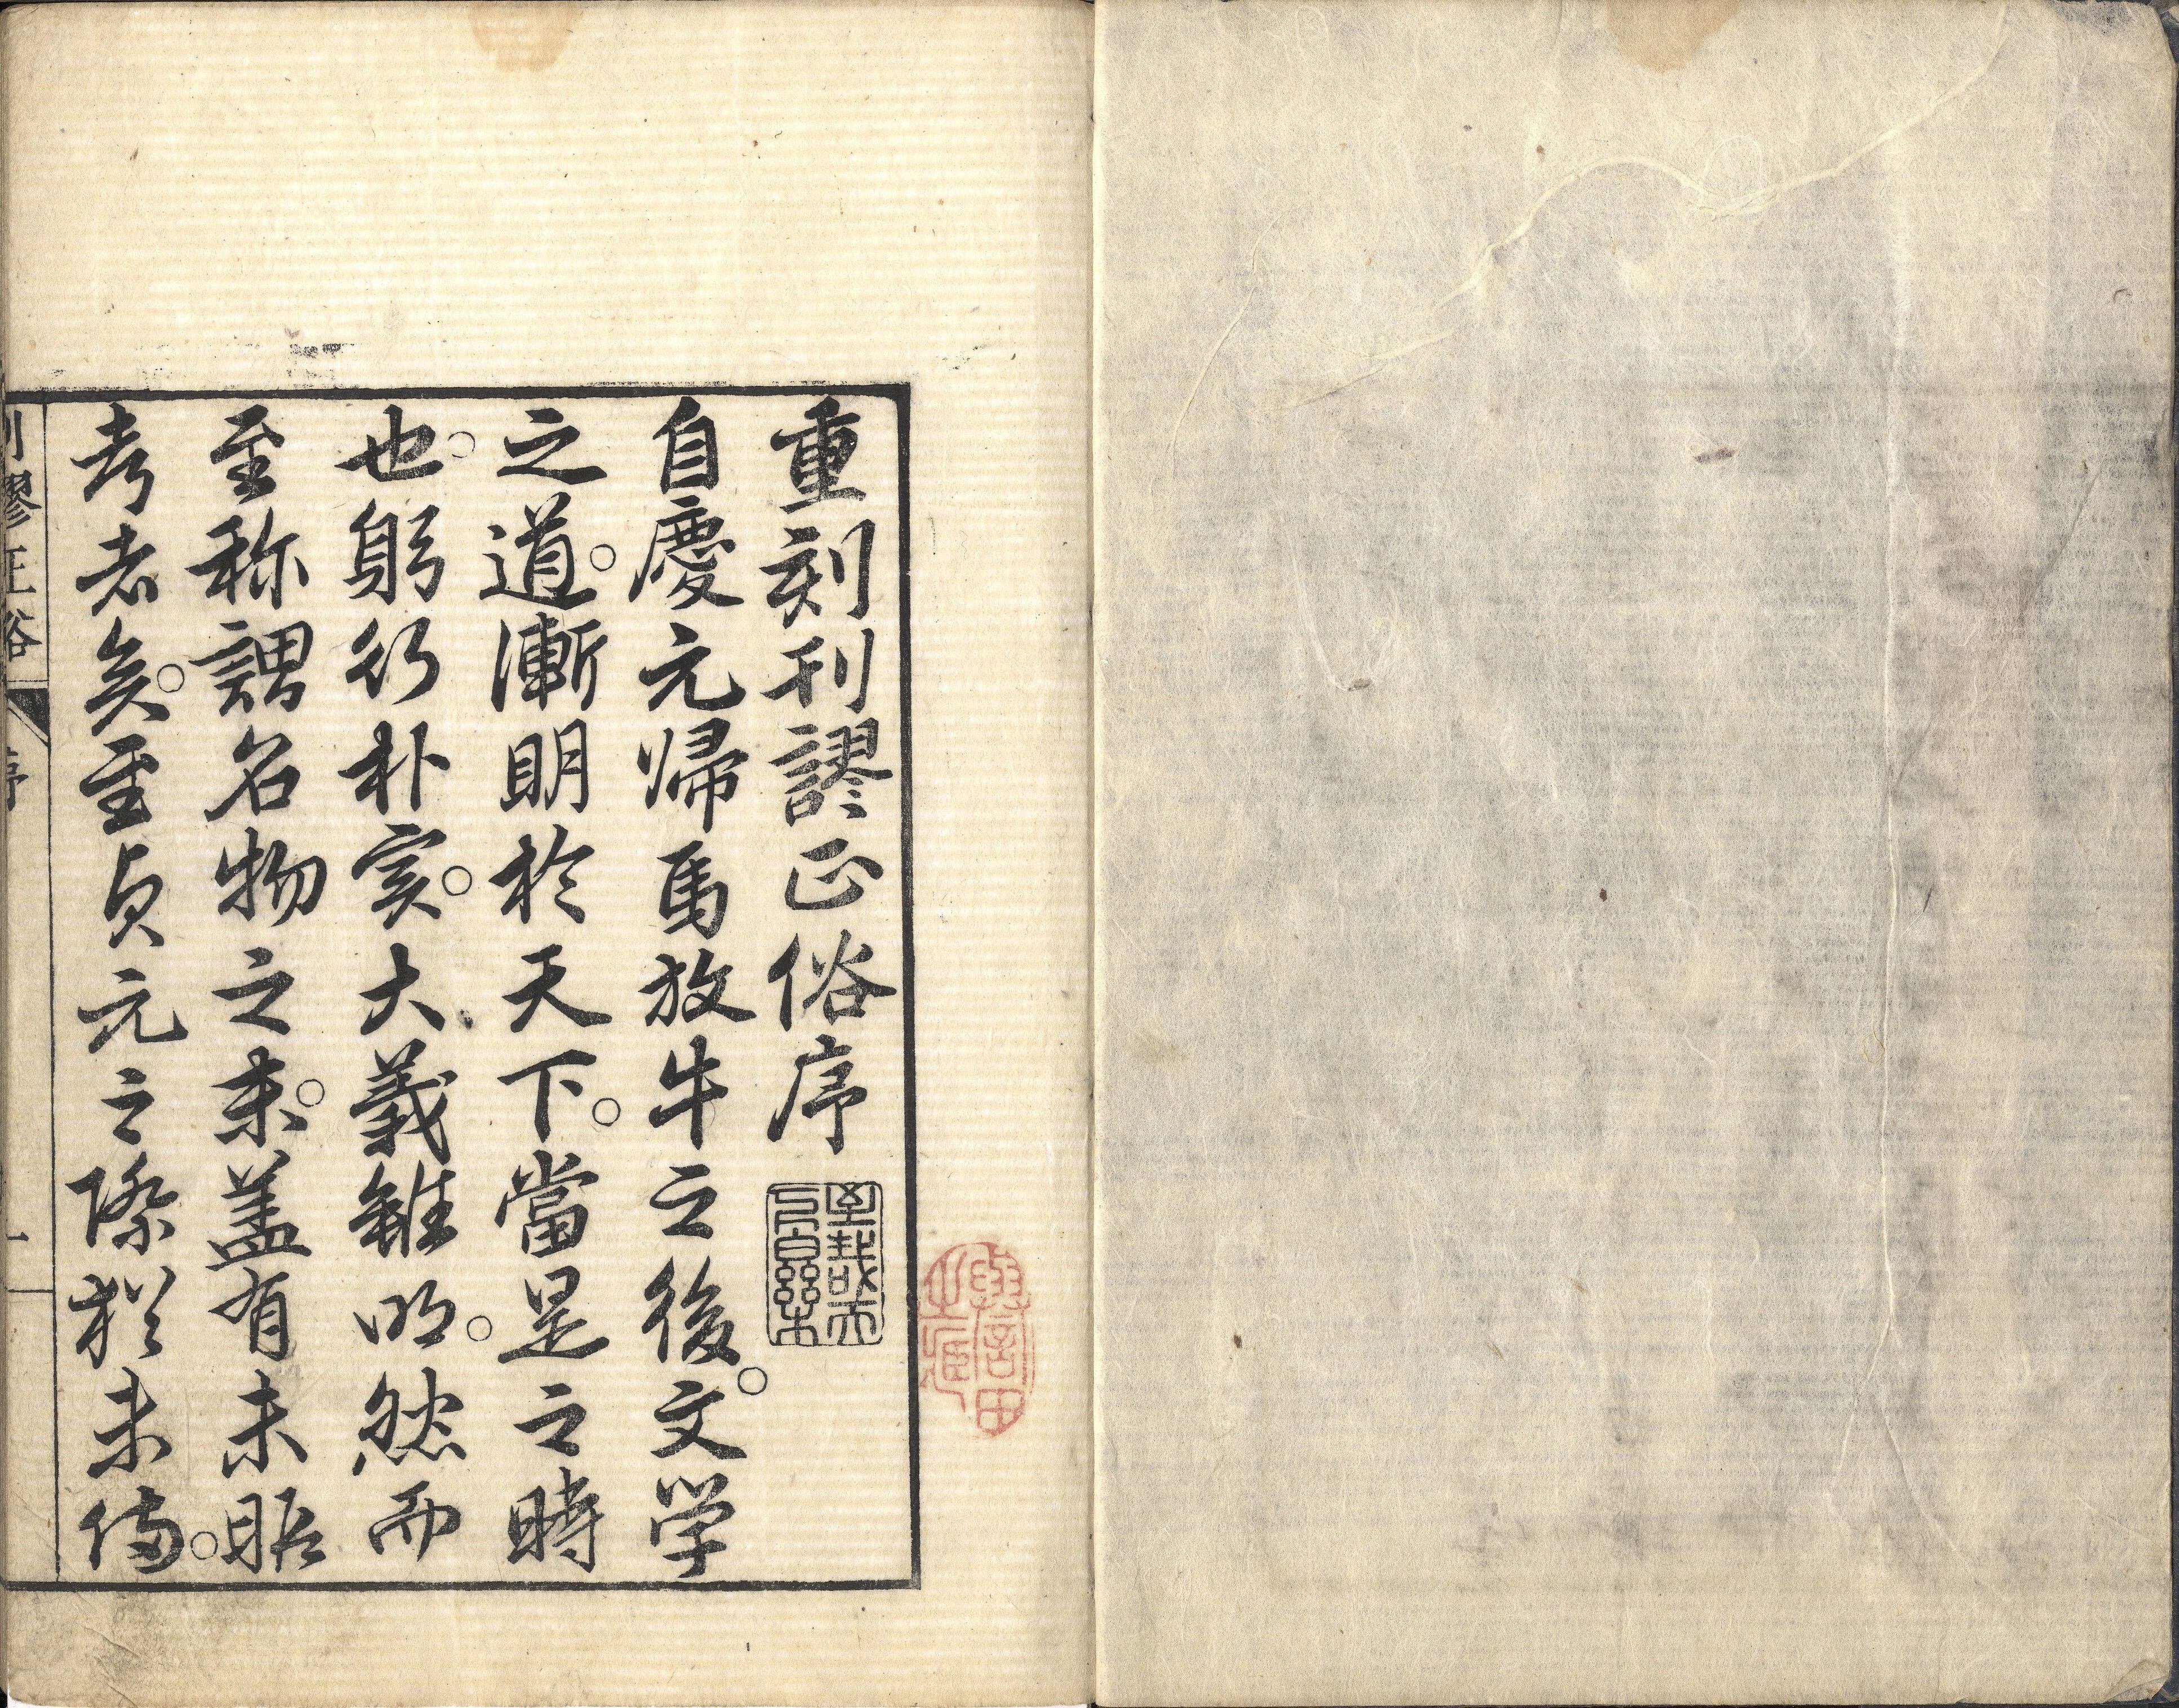 重刻刊謬正俗序
自慶元歸馬放牛之後。文学
之道。漸明於天下。當是之時
也。躬行朴実。大義雖明。然而
至称謂名物之末。盖有未暇
考者矣。至貞元之際猶未備。
刊謬正俗
序
一